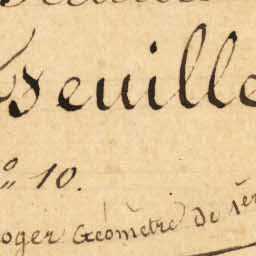 feuille
N° 10.
oger Géomètre de 1er